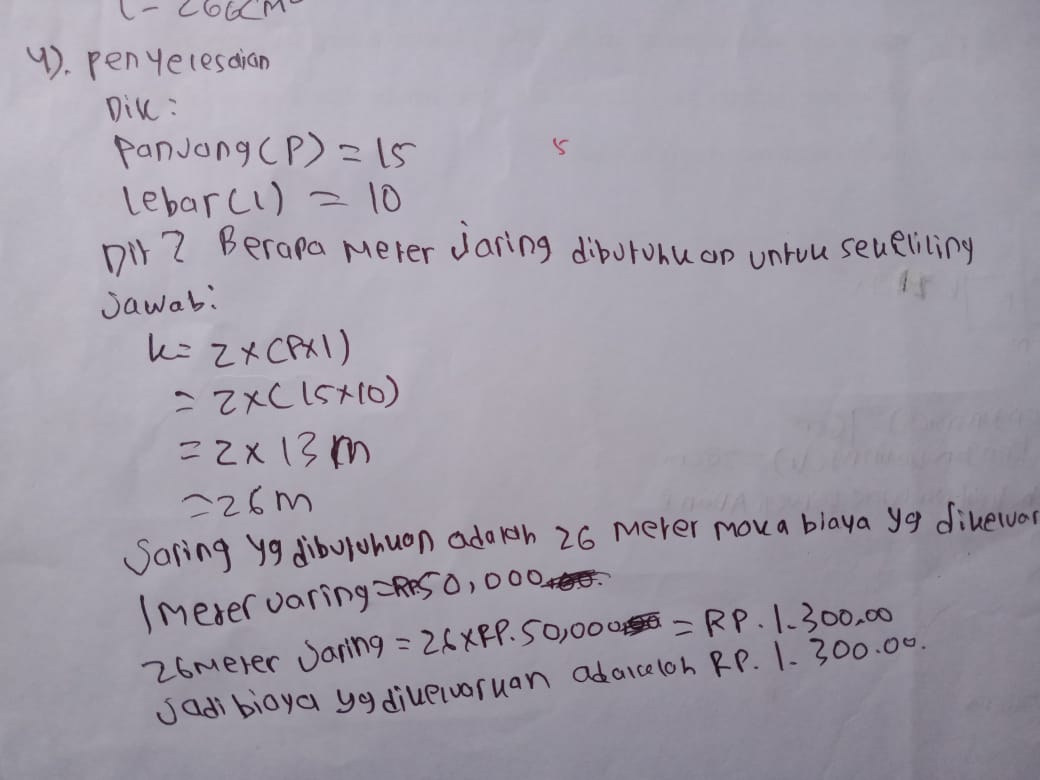 l = 266cm
4). penyelesaian
Dik:
Panjang (P) = 15
5
lebar (l) = 10
Dit ? Berapa meter jaring dibutuhkan untuk sekeliling
Jawab:
k = 2 x (Pxl)
= 2x (15x10)
= 2 x 13 m
= 26 m
Jaring yg dibutuhkan adalah 26 meter maka biaya yg dikeluar
1 meter jaring = RP50,000
26 meter jaring = 26 x RP. 50,000 = RP. 1.300.00
Jadi biaya yg dikeluarkan adalah RP. 1.300.00.